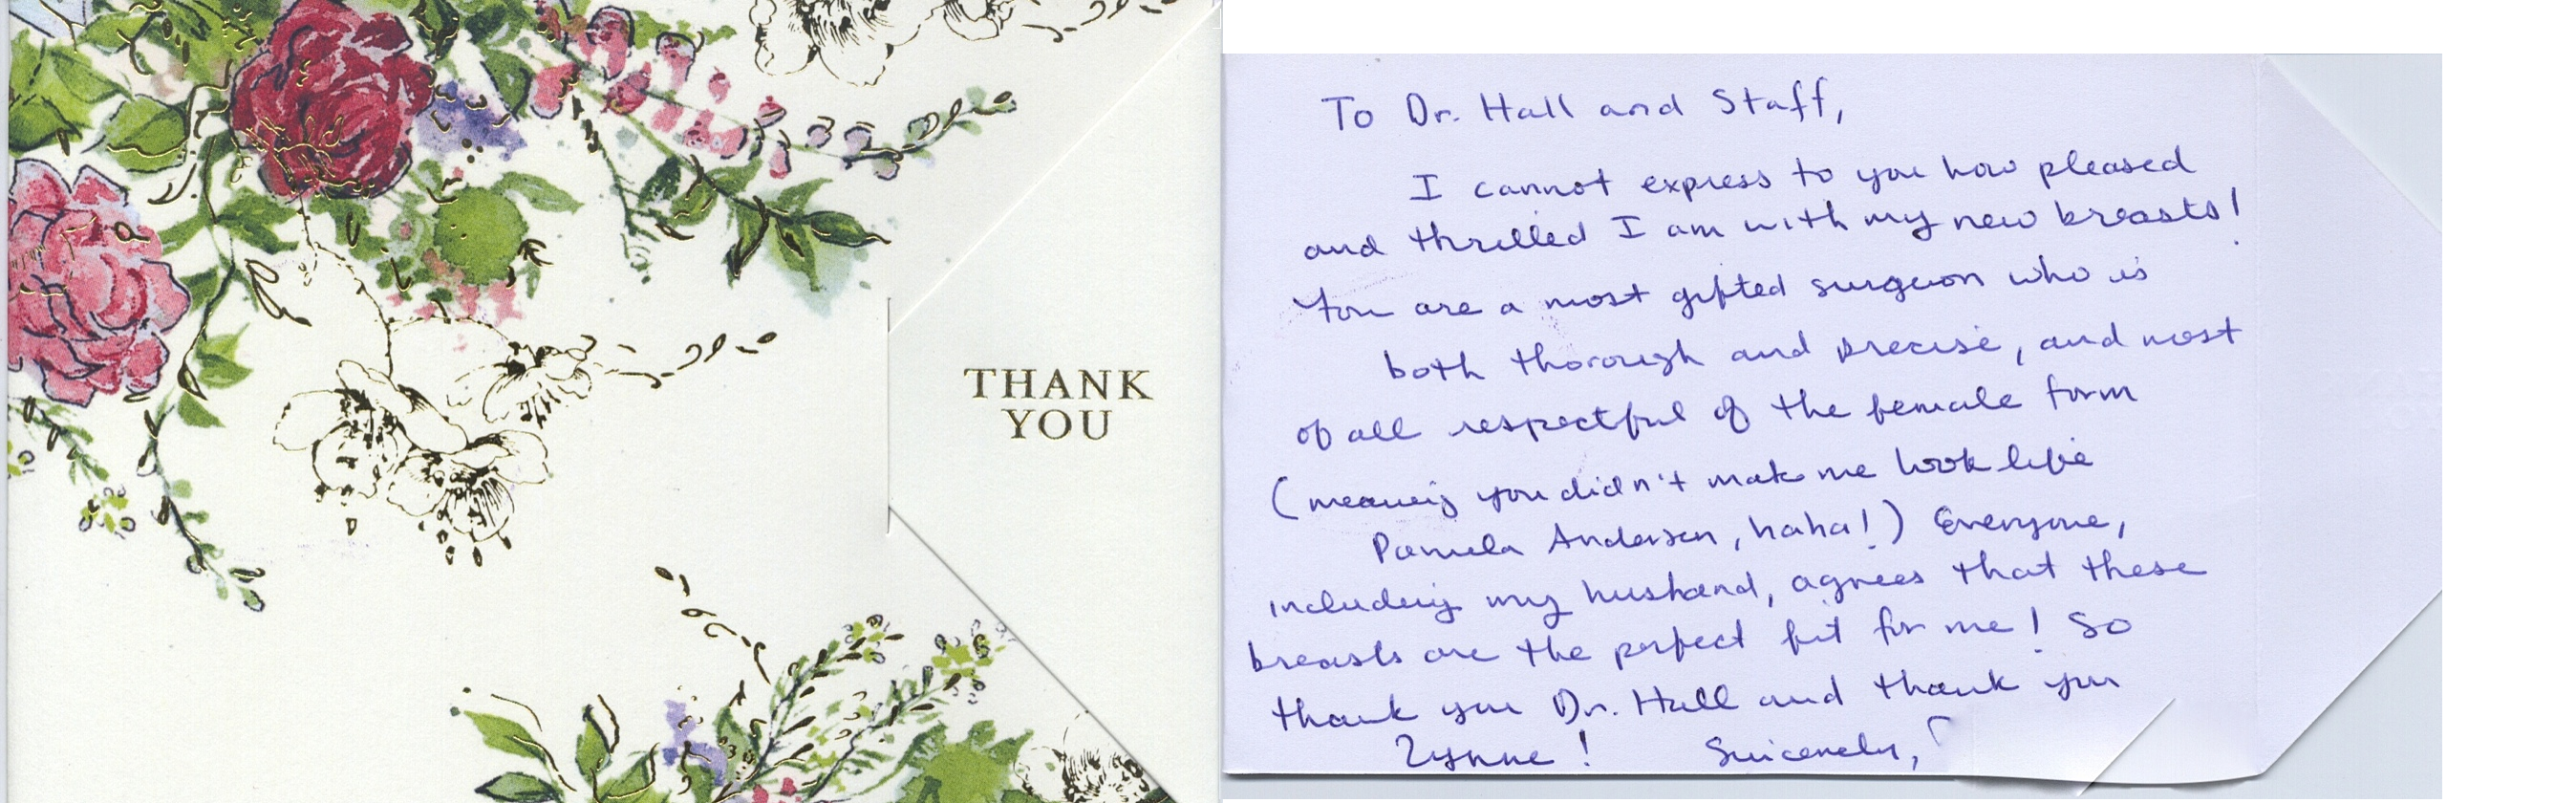 THANK
YOU
To Dr. Hall and Staff,
I cannot express to you how pleased
and thrilled I am with my new breasts!
You are a most gifted surgeon who is
both thorough and precise, and most
of all respectful of the female form
(meaning you didn't make me look like
Pamela Anderson, haha!) Everyone,
including my husband, agrees that these
breasts are the perfect fit for me! So
thank you Dr. Hall and thank you
Lynne! Sincerely,